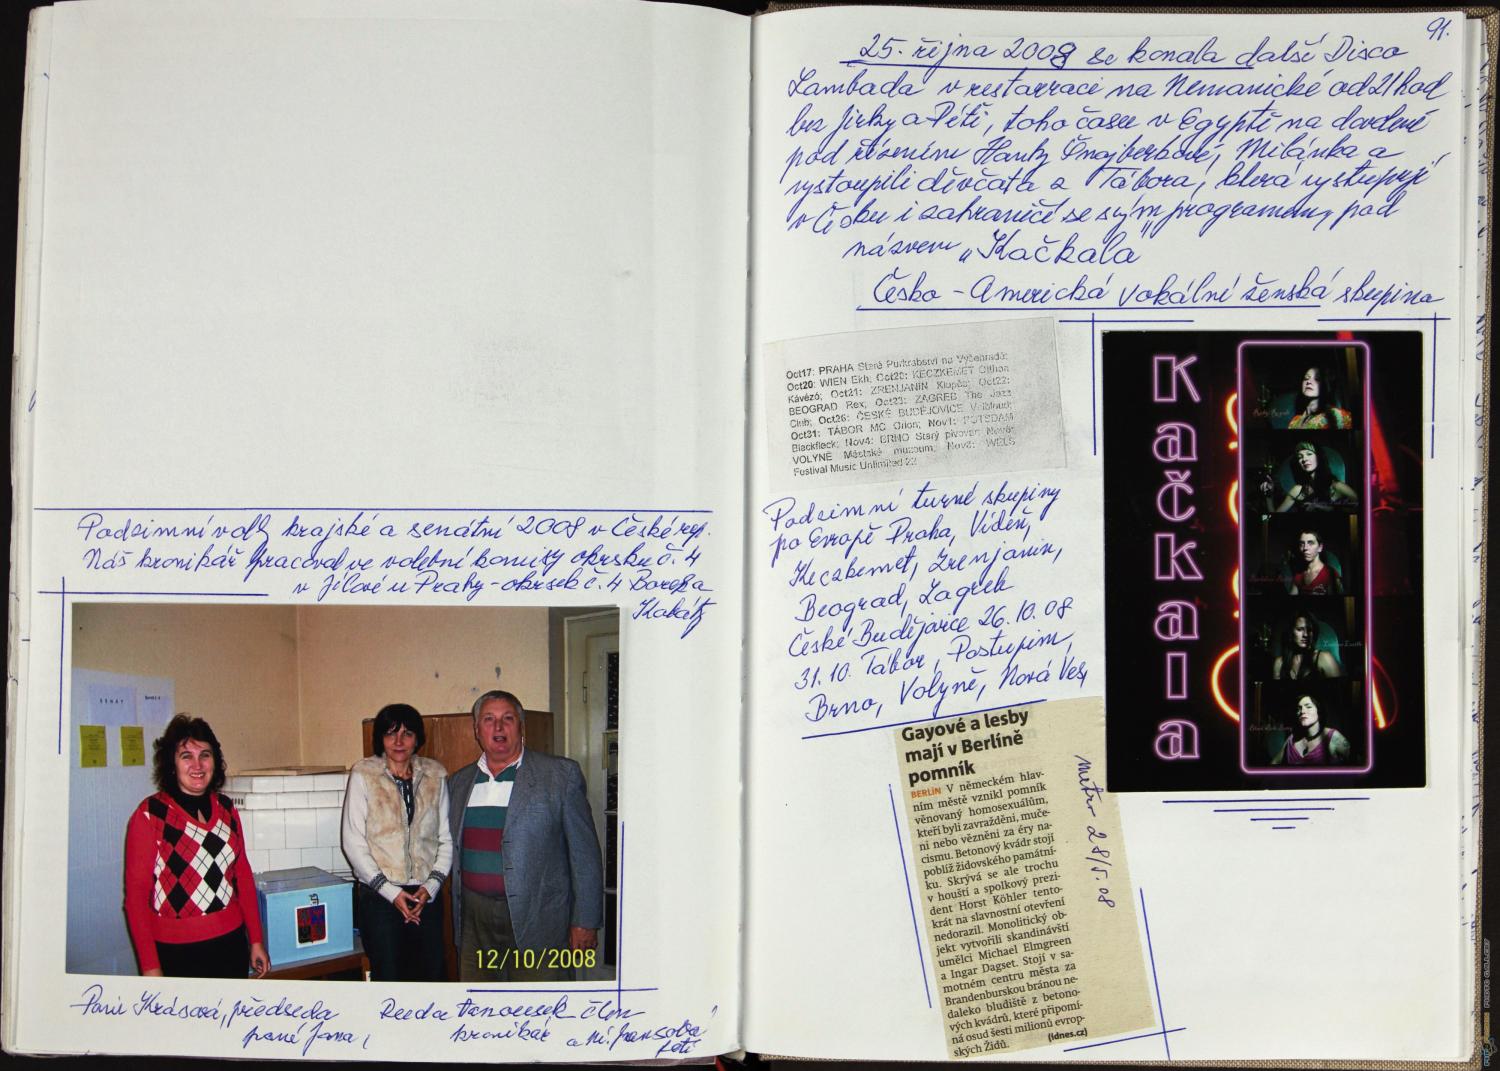 Podzimní volby krajské a senátní 2008 v České rep.
Náš kronikář pracoval ve volební komisy okrsku č. 4
v Jílové u Prahy - okrsek č. 4 Borek a
Kabáty
SENÁT
12/10/2008
Paní Krásová, předseda
paní Jana,
Ruda Hanousek člen
kronikář a
91.
25. října 2008 se konala další Disco
Lambada v restarraci na Nemanické od 21 hod
bez Jirky a Péti, toho času v Egyptě na dovolené
pod řízením Hanky Šnajberkové, Milánka a
vystoupili děvčata z Tábora, která vystupují
v Česku i zahraničí se svým programem, pod
názvem "Kačkala"
Česko - Americká vokální ženská skupina
Oct17: PRAHA Staré Purkrabství na Vyšehradě;
Oct20: WIEN Ekh; Oct20: KECZKEMET Otthon
Kávézó; Oct21: ZRENJANIN Klupče; Oct22:
BEOGRAD Rex; Oct23: ZAGREB The Jazz
Club; Oct26: ČESKÉ BUDĚJOVICE Velbloud;
Oct31: TÁBOR MC Orion; Nov1: POTSDAM
Blackfleck; Nov4: BRNO Starý pivovar;
VOLYNĚ Městské muzeum; WELS
Festival Music Unlimited 22
Kačkala
Podzimní turné skupiny
po Evropě Praha, Vídeň,
Keczkemet, Zrenjanin,
Beograd, Zagreb
České Budějovice 26.10.08
31.10. Tábor, Postupim,
Brno, Volyně, Nová Ves,
Gayové a lesby
mají v Berlíně
pomník
BERLÍN V německém hlav-
ním městě vznikl pomník
věnovaný homosexuálům,
kteří byli zavražděni, muče-
ni nebo vězněni za éry na-
cismu. Betonový kvádr stojí
poblíž židovského památní-
ku. Skrývá se ale trochu
v houští a spolkový prezi-
dent Horst Köhler tento-
krát na slavnostní otevření
nedorazil. Monolitický ob-
jekt vytvořili skandinávští
umělci Michael Elmgreen
a Ingar Dagset. Stojí v sa-
motném centru města za
Brandenburskou bránou ne-
daleko bludiště z betono-
vých kvádrů, které připomí-
ná osud šesti milionů evrop-
ských Židů.
(idnes.cz)
metro 28/5.08
PHOTO GALLERY